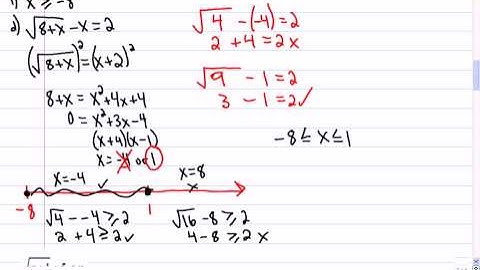 x ≥ -8
d) √8+x - x = 2
(√8+x)² = (x+2)²
8+x = x²+4x+4
0 = x²+3x-4
(x+4)(x-1)
x = -4 or 1
√4 - (-4) = 2
2 + 4 = 2 x
√9 - 1 = 2
3 - 1 = 2 ✓
-8 ≤ x ≤ 1
x=-4 ✓
x=8 x
-8 1
√4 - -4 ≥ 2
2 + 4 ≥ 2 ✓
√16 - 8 ≥ 2
4 - 8 ≥ 2 x